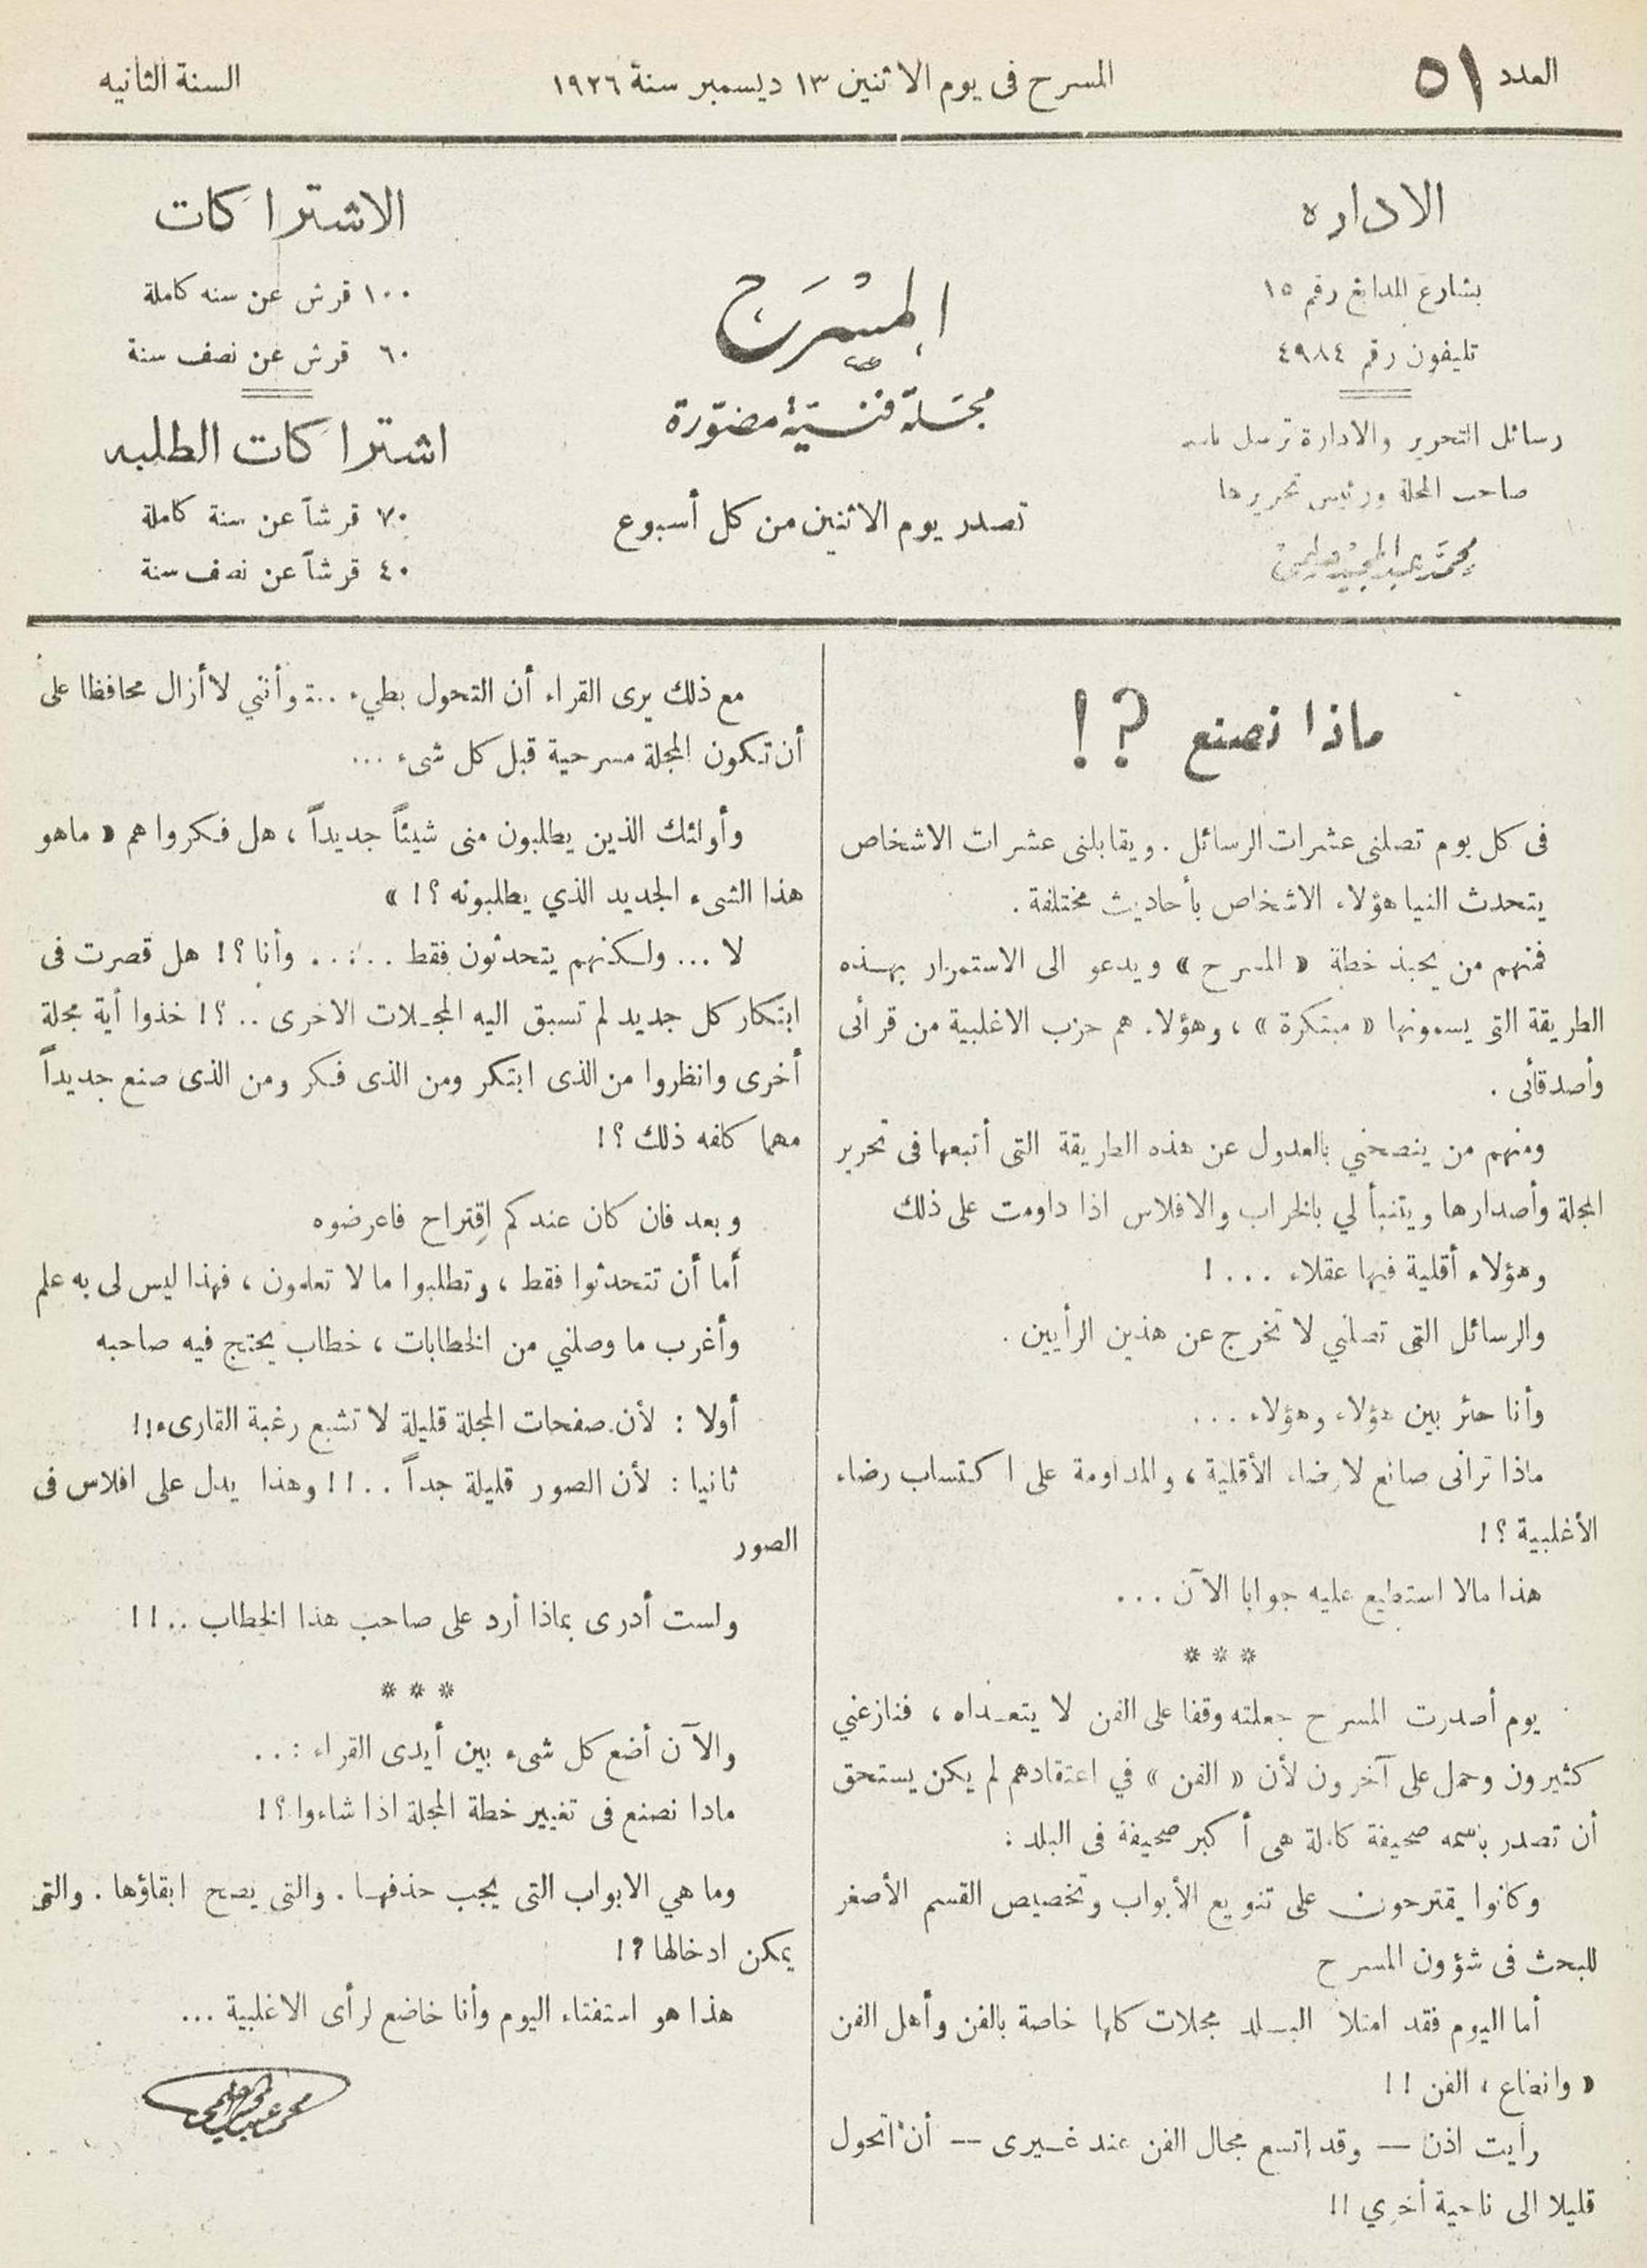 العدد ٥١
المسرح فى يوم الاثنين ١٣ ديسمبر سنة ١٩٢٦
السنة الثانيه
الاداره
بشارع المدابغ رقم ١٥
تليفون رقم ٤٩٨٤
رسائل التحرير والادارة ترسل باسم
صاحب المجلة ورئيس تحريرها
محمد عبد المجيد حلمى
المسرح
مجلة فنية مصورة
تصدر يوم الاثنين من كل أسبوع
الاشتراكات
١٠٠ قرش عن سنه كاملة
٦٠ قرش عن نصف سنة
اشتراكات الطلبه
٧٠ قرشاً عن سنة كاملة
٤٠ قرشاً عن نصف سنة
ماذا نصنع ؟!
فى كل يوم تصلنى عشرات الرسائل . ويقابلنى عشرات الاشخاص
يتحدث الينا هؤلاء الاشخاص بأحاديث مختلفة .
فمنهم من يحبذ خطة « المسرح » ويدعو الى الاستمرار بهذه
الطريقة التى يسمونها « مبتكرة » ، وهؤلاء هم حزب الاغلبية من قرائى
وأصدقائى .
ومنهم من ينصحني بالعدول عن هذه الطريقة التى أتبعها فى تحرير
المجلة وأصدارها ويتنبأ لي بالخراب والافلاس اذا داومت على ذلك
وهؤلاء أقلية فيها عقلاء ... !
والرسائل التى تصلني لا تخرج عن هذين الرأيين .
وأنا حائر بين هؤلاء وهؤلاء ...
ماذا ترانى صانع لارضاء الأقلية ، والمداومة على اكتساب رضاء
الأغلبية ؟ !
هذا مالا استطيع عليه جوابا الآن ...
* * *
يوم أصدرت المسرح جعلته وقفا على الفن لا يتعداه ، فنازعني
كثيرون وحمل على آخرون لأن « الفن » في اعتقادهم لم يكن يستحق
أن تصدر باسمه صحيفة كاملة هى أكبر صحيفة فى البلد :
وكانوا يقترحون على تنويع الأبواب وتخصيص القسم الأصغر
للبحث فى شؤون المسرح
أما اليوم فقد امتلأ البلد مجلات كلها خاصة بالفن وأهل الفن
« وانصاع ، الفن ! !
رأيت اذن — وقد إتسع مجال الفن عند غيرى — أن اتحول
قليلا الى ناحية أخرى !!
مع ذلك يرى القراء أن التحول بطيء ... وأنني لا أزال محافظا على
أن تكون المجلة مسرحية قبل كل شىء ...
وأولئك الذين يطلبون منى شيئاً جديداً ، هل فكروا هم « ماهو
هذا الشىء الجديد الذي يطلبونه ؟ ! »
لا ... ولكنهم يتحدثون فقط ..... وأنا ؟ ! هل قصرت فى
ابتكار كل جديد لم تسبق اليه المجلات الاخرى .. ؟ ! خذوا أية مجلة
أخرى وانظروا من الذى ابتكر ومن الذى فكر ومن الذى صنع جديداً
مهما كلفه ذلك ؟ !
وبعد فان كان عندكم اقتراح فاعرضوه
أما أن تتحدثوا فقط ، وتطلبوا ما لا تعلمون ، فهذا ليس لى به علم
وأغرب ما وصلني من الخطابات ، خطاب يحتج فيه صاحبه
أولا : لأن صفحات المجلة قليلة لا تشبع رغبة القارىء !!
ثانيا : لأن الصور قليلة جداً .. !! وهذا يدل على افلاس فى
الصور
ولست أدرى بماذا أرد على صاحب هذا الخطاب .. !!
* * *
والآن أضع كل شىء بين أيدى القراء : ..
مادا نصنع فى تغيير خطة المجلة اذا شاءوا ؟ !
وما هي الابواب التى يجب حذفها . والتى يصح ابقاؤها . والتى
يمكن ادخالها ? !
هذا هو استفتاء اليوم وأنا خاضع لرأى الاغلبية ...
محمد عبد المجيد حلمى